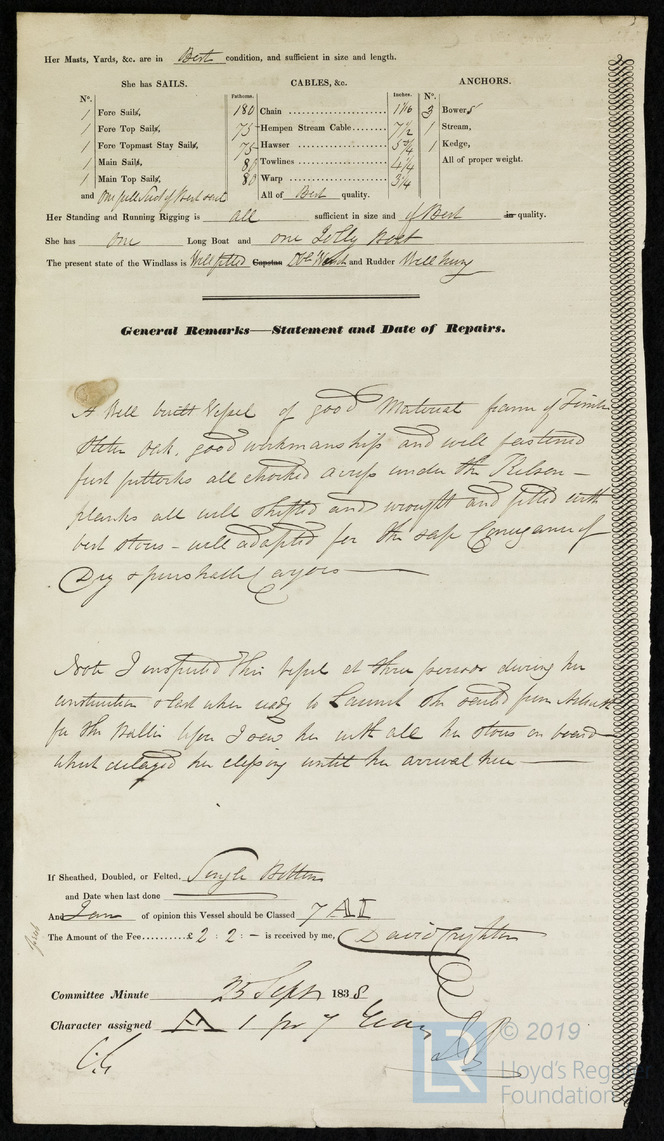 Her Masts, Yards, &c. are in Best condition, and sufficient in size and length.
She has SAILS. CABLES, &c. ANCHORS.
No. Fathoms. Inches. No.
1 Fore Sails, 180 Chain 1 1/16 3 Bowers
1 Fore Top Sails, 75 Hempen Stream Cable 7 1/2 1 Stream,
1 Fore Topmast Stay Sails, 75 Hawser 5 3/4 1 Kedge,
1 Main Sails, 80 Towlines 4 1/4 All of proper weight.
1 Main Top Sails, 80 Warp 3 1/4
and One full Suit of Best All of Best quality.
Her Standing and Running Rigging is all sufficient in size and of Best in quality.
She has one Long Boat and one Jolly Boat
The present state of the Windlass is Well fitted Capstan and Rudder Well hung
General Remarks—Statement and Date of Repairs.
A Well built Vessel of good Material frame of
Oak, good workmanship and well fastened
futtocks all chocked across under the Kelson —
planks all well shifted and wrought and fitted with
best stores – well adapted for the safe Conveyance of
Dry & perishable Cargoes
Note I inspected this Vessel at three periods during her
construction & last when ready to Launch She sailed from
for the Baltic before I saw her with all her stores on board
which delayed her classing until her arrival here
If Sheathed, Doubled, or Felted, Single Bottom
and Date when last done
And I am of opinion this Vessel should be Classed 7 A I
The Amount of the Fee £ 2 : 2 : - is received by me, David Crighton
Committee Minute 25 Sept 1838
Character assigned A 1 for 7 Years
© 2019
LR
Lloyd's Register
Foundation